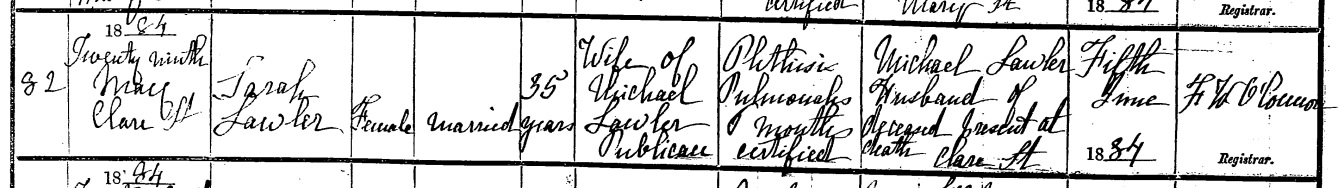 certified
Mary St
1884
Registrar.
82
1884
Twenty ninth
May
Clare St
Sarah
Lawler
Female
Married
35
years
Wife of
Michael
Lawler
Publican
Phthisis
Pulmonalis
months
certified
Michael Lawler
Husband of
deceased present at
death Clare St
Fifth
June
1884
O'Connor
Registrar.
1884